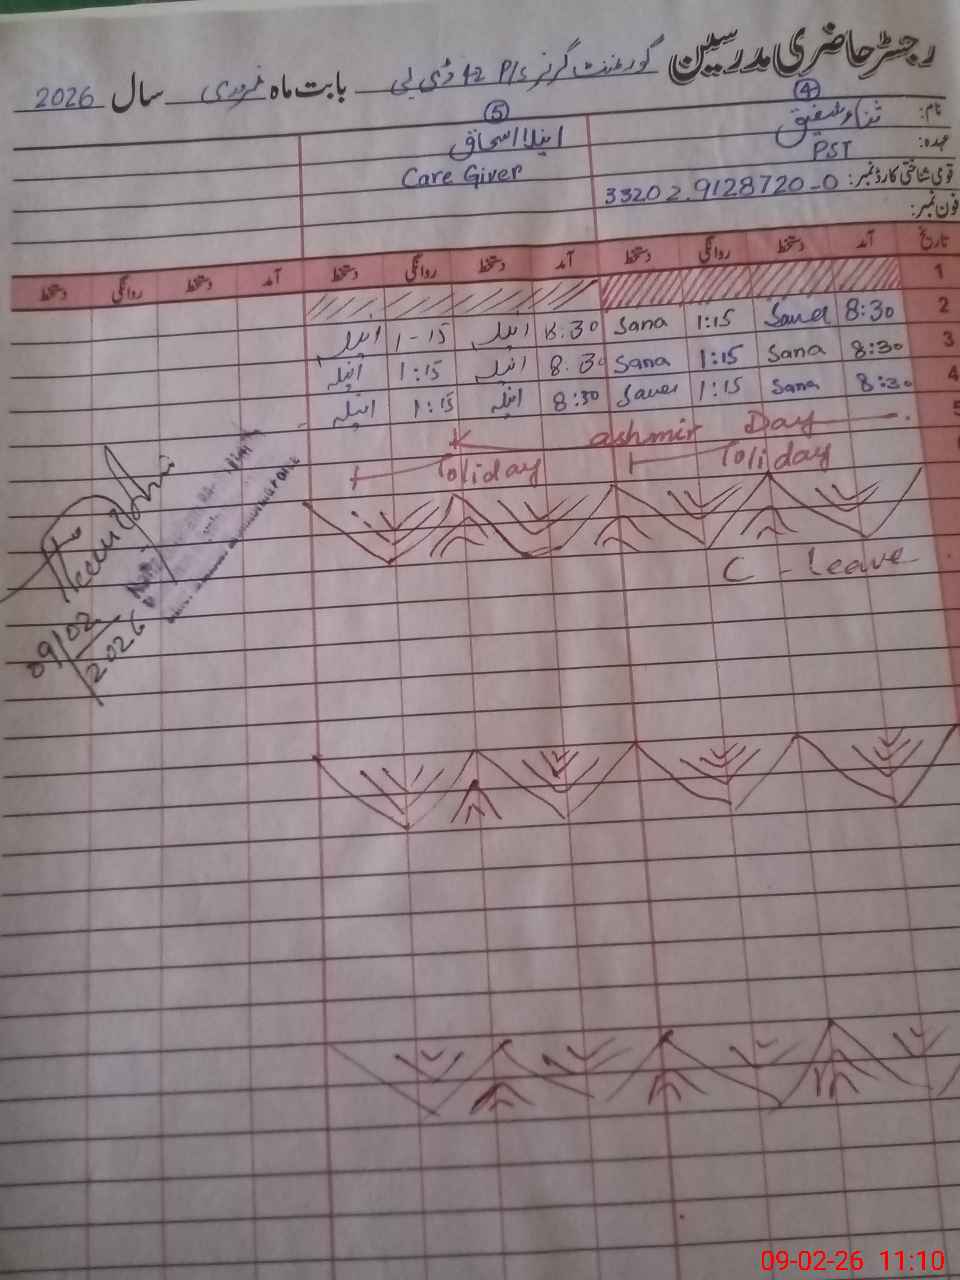 رجسٹر حاضری مدرسین گورنمنٹ گرلز P/S 42 ڈی بی بابت ماہ فروری سال 2026
④ ⑤
نام: ثناء شفیق انیلا اسحاق
عہدہ: PST Care Giver
قومی شناختی کارڈ نمبر: 33202-9128720-0
فون نمبر:
تاریخ آمد دستخط روانگی دستخط آمد دستخط روانگی دستخط آمد دستخط روانگی دستخط
1
2 8:30 Sana 1:15 Sana 8:30 انیلہ 1-15 انیلہ
3 8:30 Sana 1:15 Sana 8:30 انیلہ 1:15 انیلہ
4 8:30 Sana 1:15 Sana 8:30 انیلہ 1:15 انیلہ
5 Kashmir Day
Holiday Holiday
C - Leave
09/02/2026
09-02-26 11:10